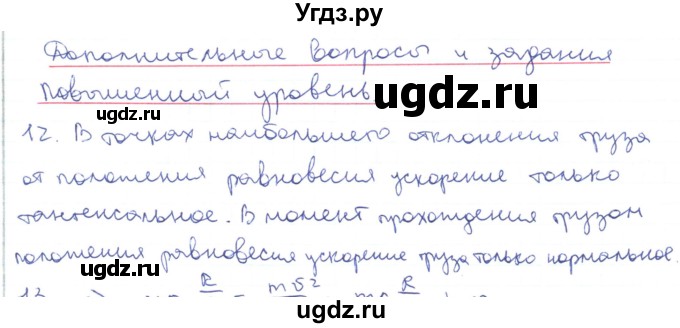 Угдз.ру
Дополнительные вопросы и задания
Повышенный уровень
©gdz.ru
12. В точках наибольшего отклонения груза
от положения равновесия ускорение только
тангенсальное. В момент прохождения грузом
положения равновесия ускорение груза только нормальное.
©gdz.ru
©gdz.ru
13. R mυ² R
©gdz.ru